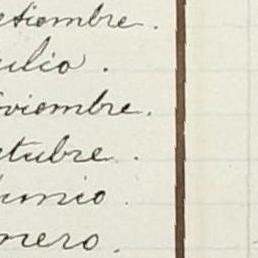 etiembre.
ulio.
oviembre.
ctubre.
unio.
nero.